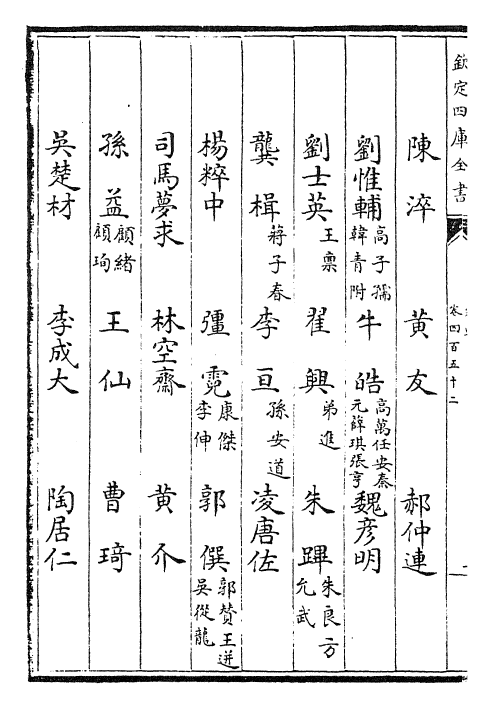 欽定四庫全書
卷四百五十二
陳淬 黃友 郝仲連
劉惟輔 高子孺 韓青附 牛皓 高萬任安秦 元薛琪張亨 魏彥明
劉士英 王禀 翟興 弟進 朱蹕 朱良方 允武
龔楫 蔣子春 李亘 孫安道 凌唐佐
楊粹中 彊霓 康傑 李伸 郭僎 郭贊王迸 吳從龍
司馬夢求 林空齋 黃介
孫益 顧緒 顧珣 王仙 曹琦
吳楚材 李成大 陶居仁